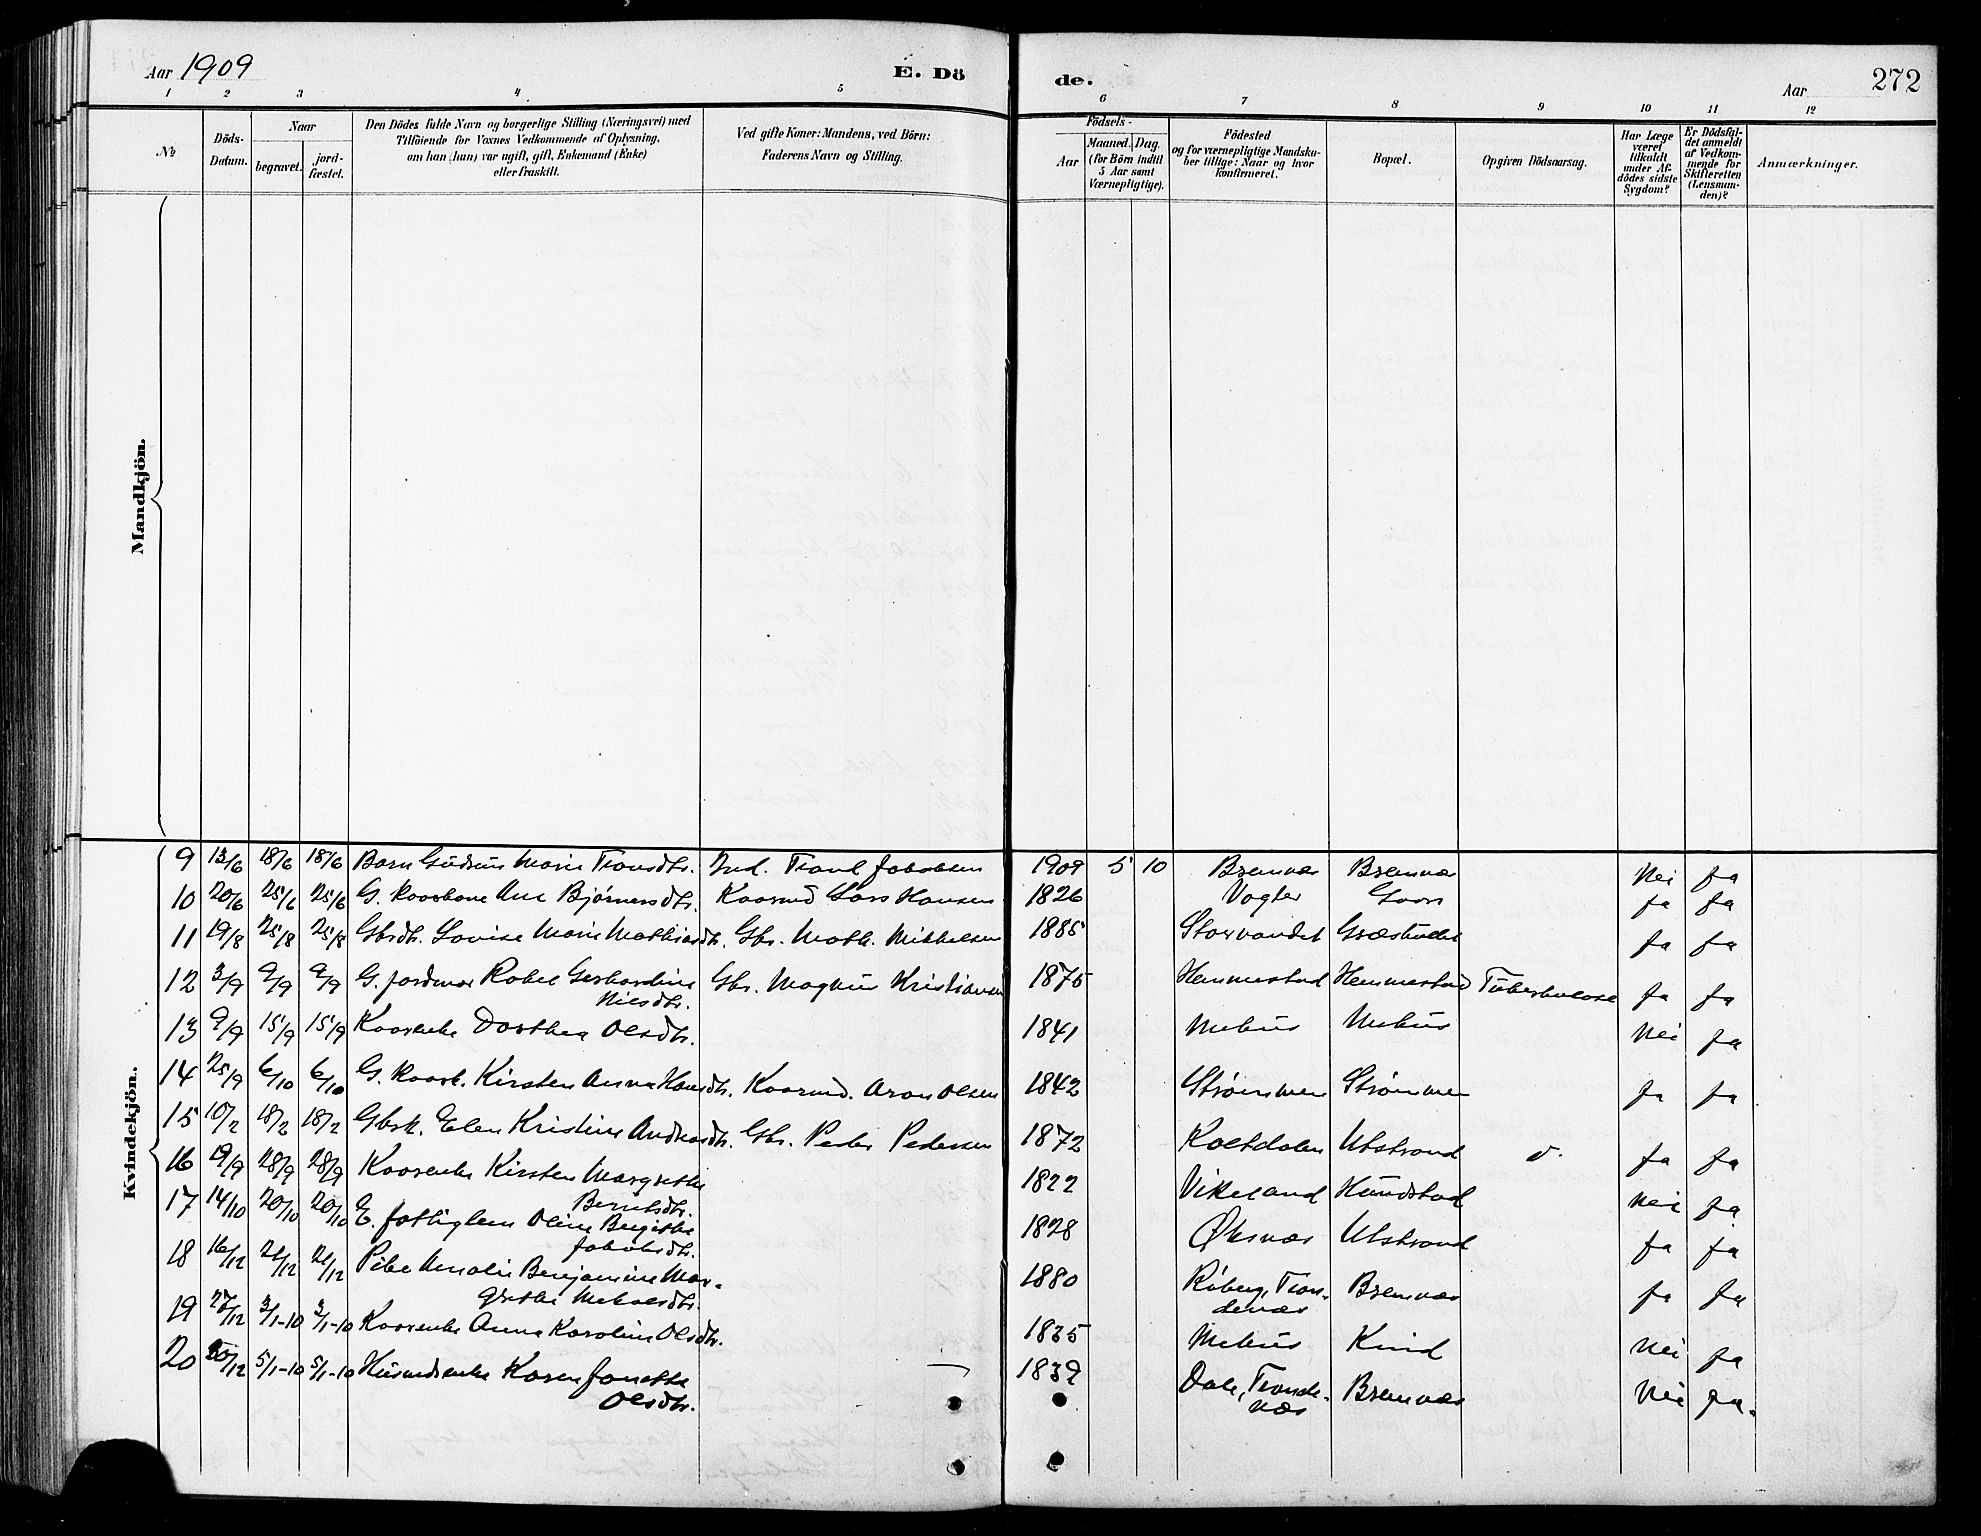 Aar 1909
E. Dö
de.
Aar
272
1 2 3 4 5
6 7 8 9 10 11 12
№
Döds-
Datum.
Naar
begravet.
jord-
fæstet.
Den Dödes fulde Navn og borgerlige Stilling (Næringsvei) med
Tilföiende for Voxnes Vedkommende af Oplysning,
om han (hun) var ugift, gift, Enkemand (Enke)
eller fraskilt.
Ved gifte Koner: Mandens, ved Börn:
Faderens Navn og Stilling.
Födsels-
Aar
Maaned. Dag.
(for Börn indtil
5 Aar samt
Værnepligtige).
Födested
og for værnepligtige Mandska-
ber tillige: Naar og hvor
konfirmeret.
Bopæl.
Opgiven Dödsaarsag.
Har Læge
været
tilkaldt
under Af-
dödes sidste
Sygdom?
Er Dödsfal-
det anmeldt
af Vedkom-
mende for
Skifteretten
(Lensman-
den)?
Anmærkninger.
Mandkjön.
Kvindekjön.
9 13/6 18/6 18/6 Barn Gudrun Marie Transdtr. Ind. Trand Jakobsen 1909 5 10 Bremnes Bremnes Nei Ja
10 20/6 25/6 25/6 G. kaarkone Ane Bjørnersdtr. Kaarmd Lars Hansen 1826 Vogter Ja Ja
11 19/8 25/8 25/8 Gbrdtr. Lovise Marie Mathiasdtr. Gbr. Math. Mikkelsen 1885 Storvandet Græsholtet Ja Ja
12 3/9 9/9 9/9 G. jordmor Rakel Gerhardine Gbr. Magnus Kristiansen 1875 Hemmestad Hemmestad Tuberkulose Ja Ja
Nilsdtr.
13 9/9 15/9 15/9 Kaarenke Dorthea Olsdtr. 1841 Melus Melus Nei Ja
14 25/9 6/10 6/10 G. kaark. Kirsten Anna Hansdtr. Kaarmd. Aron Olsen 1842 Strømmen Strømmen Ja Ja
15 10/2 18/2 18/2 Gbrk. Elen Kristine Andreasdtr. Gbr. Peder Pedersen 1872 Kaltdalen Utstrand d. Ja Ja
16 19/9 28/9 28/9 Kaarenke Kirsten Margrethe 1822 Vikeland Hundstad Nei Ja
Berntsdtr.
17 14/10 20/10 20/10 E. fattiglem Oline Bergithe 1828 Øksnæs Utstrand Ja Ja
Jakobsdtr.
18 16/12 21/12 21/12 Pike Amalie Benjamine Mar- 1880 Røberg, Tron- Bremnes Ja Ja
grethe Mikalsdtr. denæs
19 27/12 3/1-10 3/1-10 Kaarenke Anna Karoline Olsdtr. 1835 Melus Kvid Nei Ja
20 30/12 5/1-10 5/1-10 Husmdsenke Karen Jonette 1839 Dale, Tronde- Bremnes Nei Ja.
Olsdtr. næs